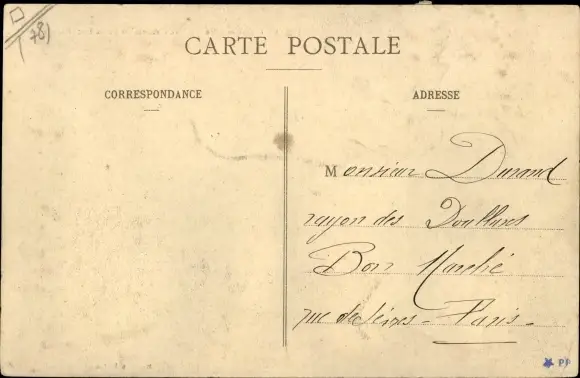 (78)
CARTE POSTALE
CORRESPONDANCE
ADRESSE
Monsieur Durand
rayon des Doublures
Bon Marché
rue de Sèvres - Paris -